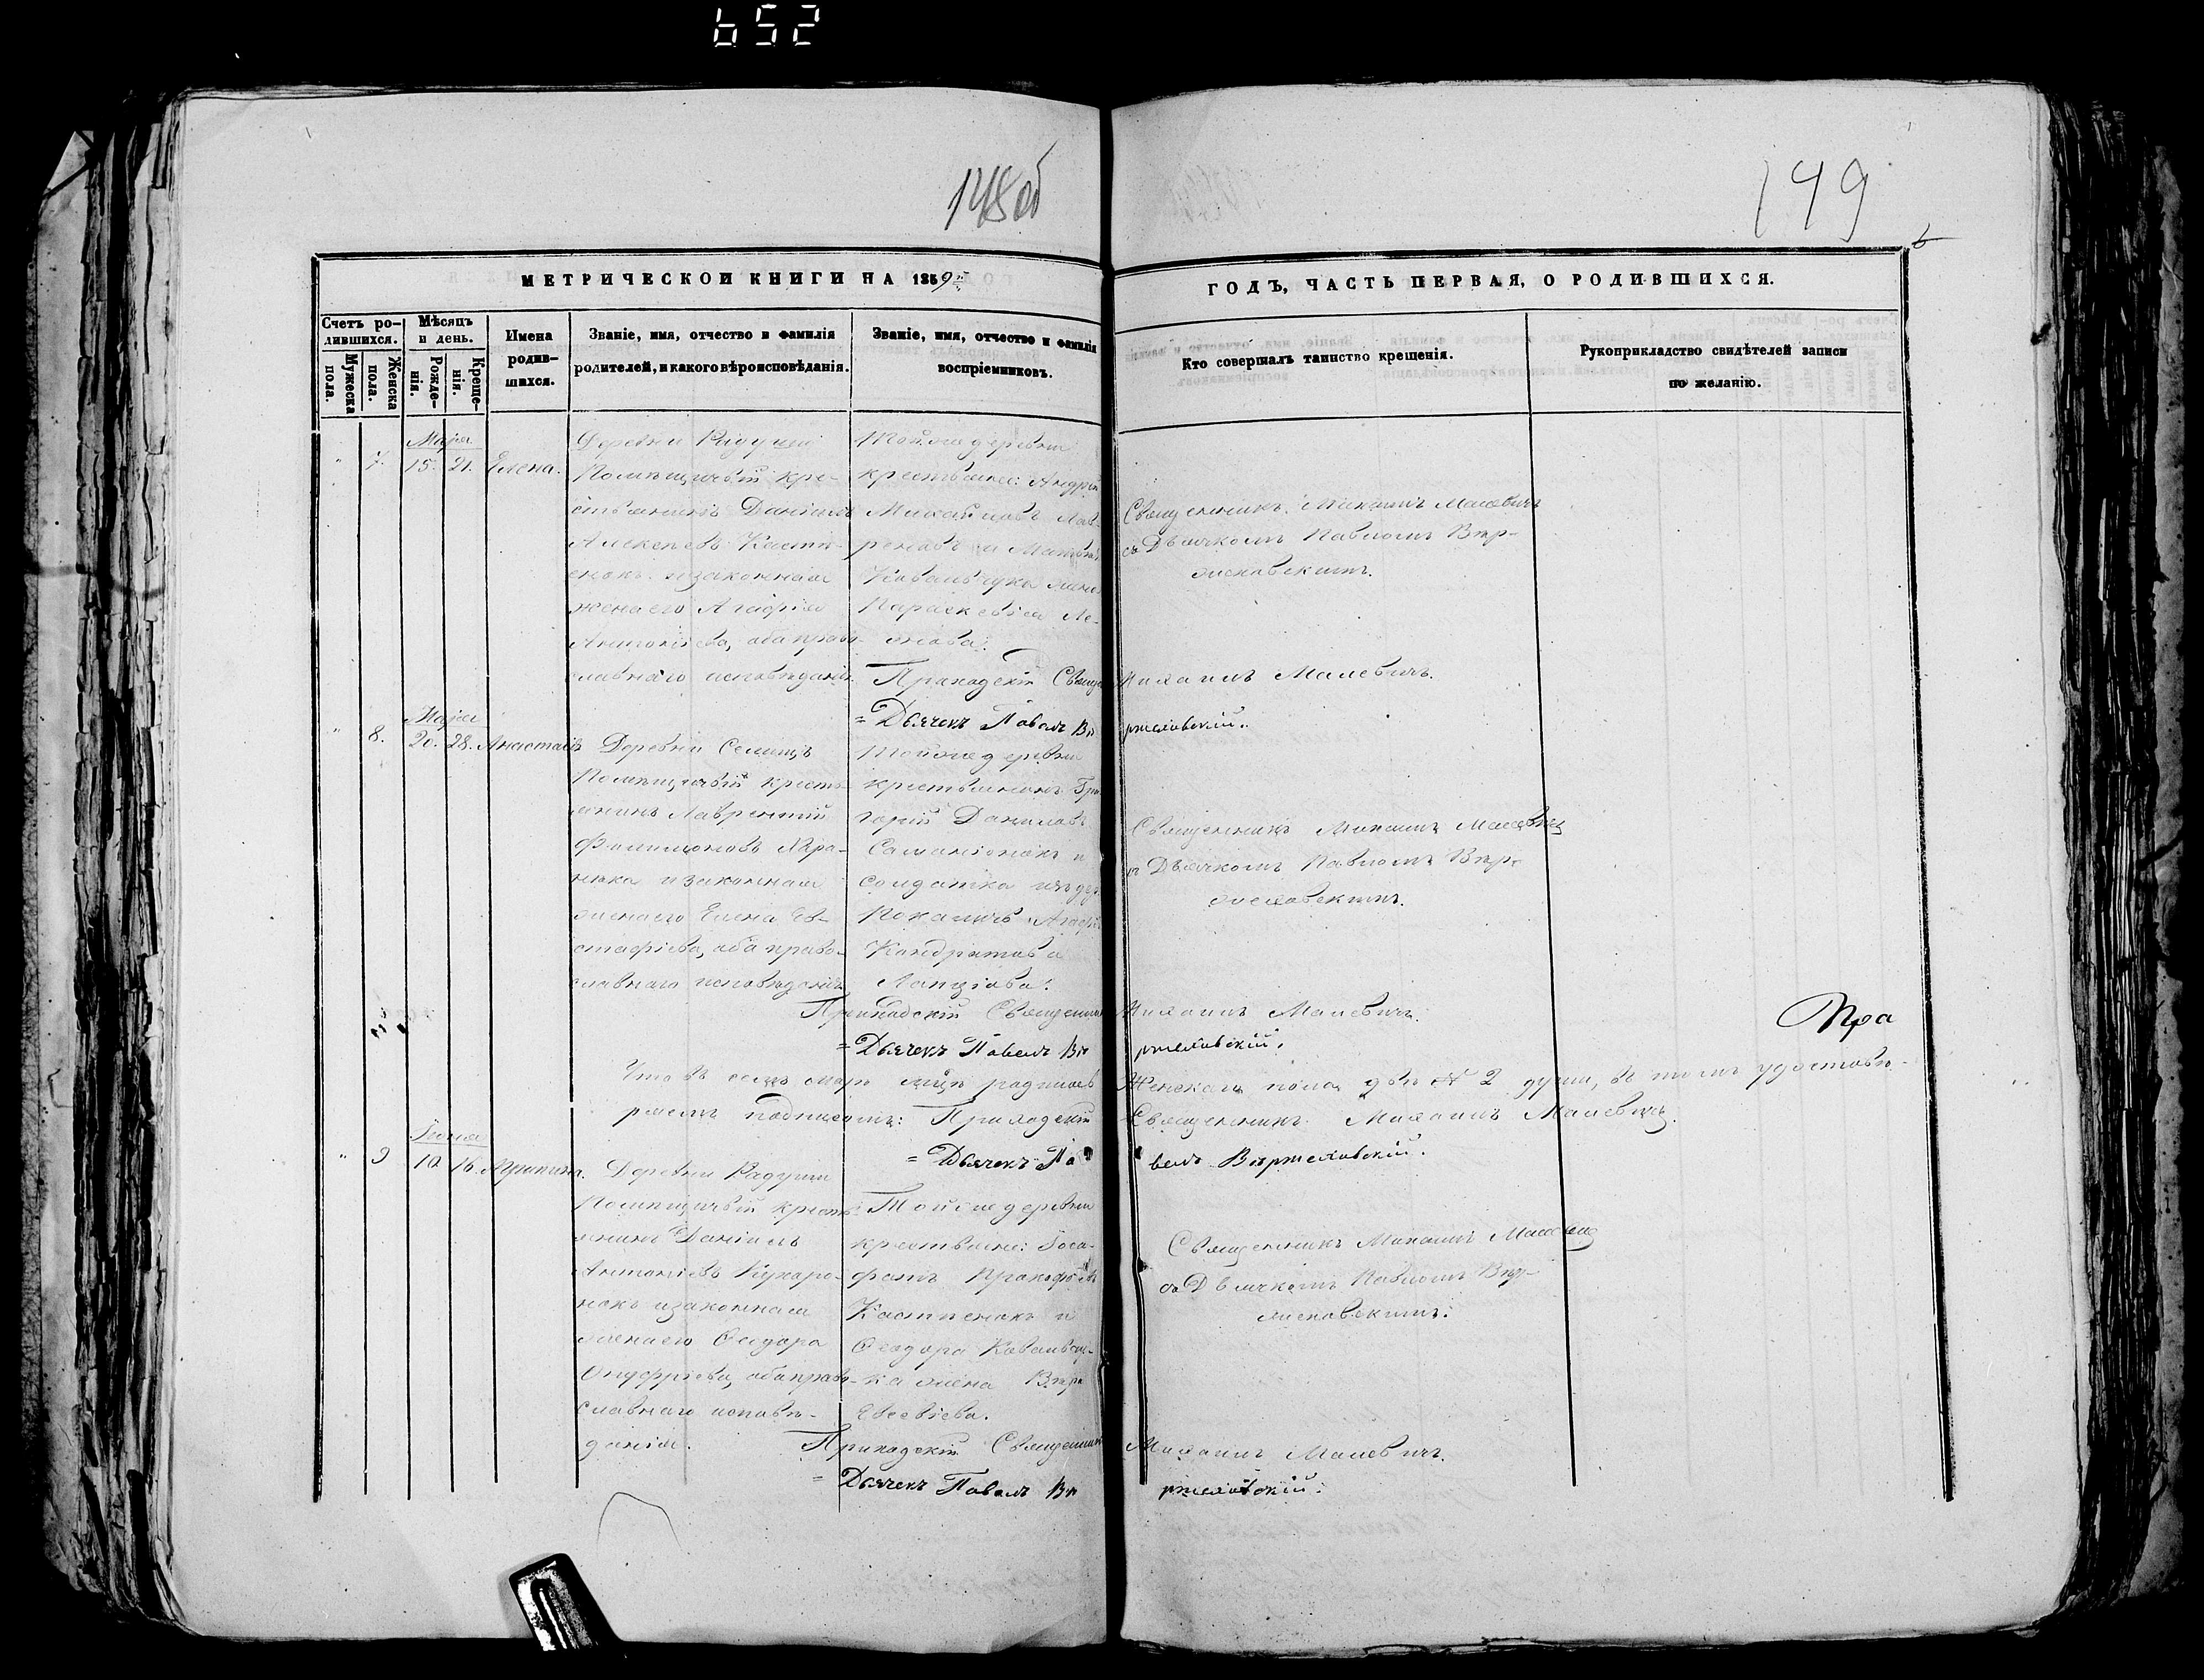 652
148об
149
МЕТРИЧЕСКОЙ КНИГИ НА 1859й
ГОДЪ, ЧАСТЬ ПЕРВАЯ, О РОДИВШИХСЯ.
Счетъ ро-
дившихся.
Мужеска
пола.
Женска
пола.
Мѣсяцъ
и день.
Рожде-
нія.
Креще-
нія.
Имена
родив-
шихся.
Званіе, имя, отчество и фамилія
родителей, и какого вѣроисповѣданія.
Званіе, имя, отчество и фамилія
воспріемниковъ.
Кто совершалъ таинство крещенія.
Рукоприкладство свидѣтелей записи
по желанію.
" 7. Маія 15. 21. Елена.
Деревни Радуши
Помѣщичій кре-
стьянинъ Даніилъ
Алексѣевъ
законная
жена его Агафія
Антоніева, оба право-
славнаго исповѣданія.
Тойже деревни
крестьяне: Андрей
Михайловъ Лав-
реновъ и
Ковальчука жена
Параскевія Ле-
онова.
Священникъ Михаилъ Малевичъ
съ Дьячкомъ Павломъ Вѣр-
жековскимъ.
Приходскій Священникъ Михаилъ Малевичъ.
= Дьячекъ Павелъ Вѣржековскій.
" 8. Маія 20. 28. Анастасія
Деревни Селищъ
Помѣщичій кресть-
янинъ Лаврентій
Филимоновъ
и законная
жена его Елена Ев-
стафіева, оба право-
славнаго исповѣданія.
Тойже деревни
крестьянинъ Гри-
горій Даниловъ
и
солдатка изъ дер.
Агафія
Кондратова
Священникъ Михаилъ Малевичъ
съ Дьячкомъ Павломъ Вѣр-
жековскимъ.
Приходскій Священникъ Михаилъ Малевичъ.
= Дьячекъ Павелъ Вѣржековскій.
Что въ семъ маѣ мѣсяцѣ родилось Женскаго пола двѣ 2 души, въ томъ удостовѣ-
ряемъ подписомъ: Приходскій Священникъ Михаилъ Малевичъ.
= Дьячекъ Павелъ Вѣржековскій.
" 9 Іюня 10. 16. Агрипина.
Деревни Радуши
Помѣщичій кресть-
янинъ Даніилъ
Антоніевъ Кухаро-
нокъ и законная
жена его Феодора
Онуфріева, оба право-
славнаго исповѣ-
данія.
Тойже деревни
крестьяне: Іоса-
фатъ
и
Феодора Ковальчу-
ка жена
Евсевіева.
Священникъ Михаилъ Малевичъ
съ Дьячкомъ Павломъ Вѣр-
жековскимъ.
Приходскій Священникъ Михаилъ Малевичъ.
= Дьячекъ Павелъ Вѣржековскій.